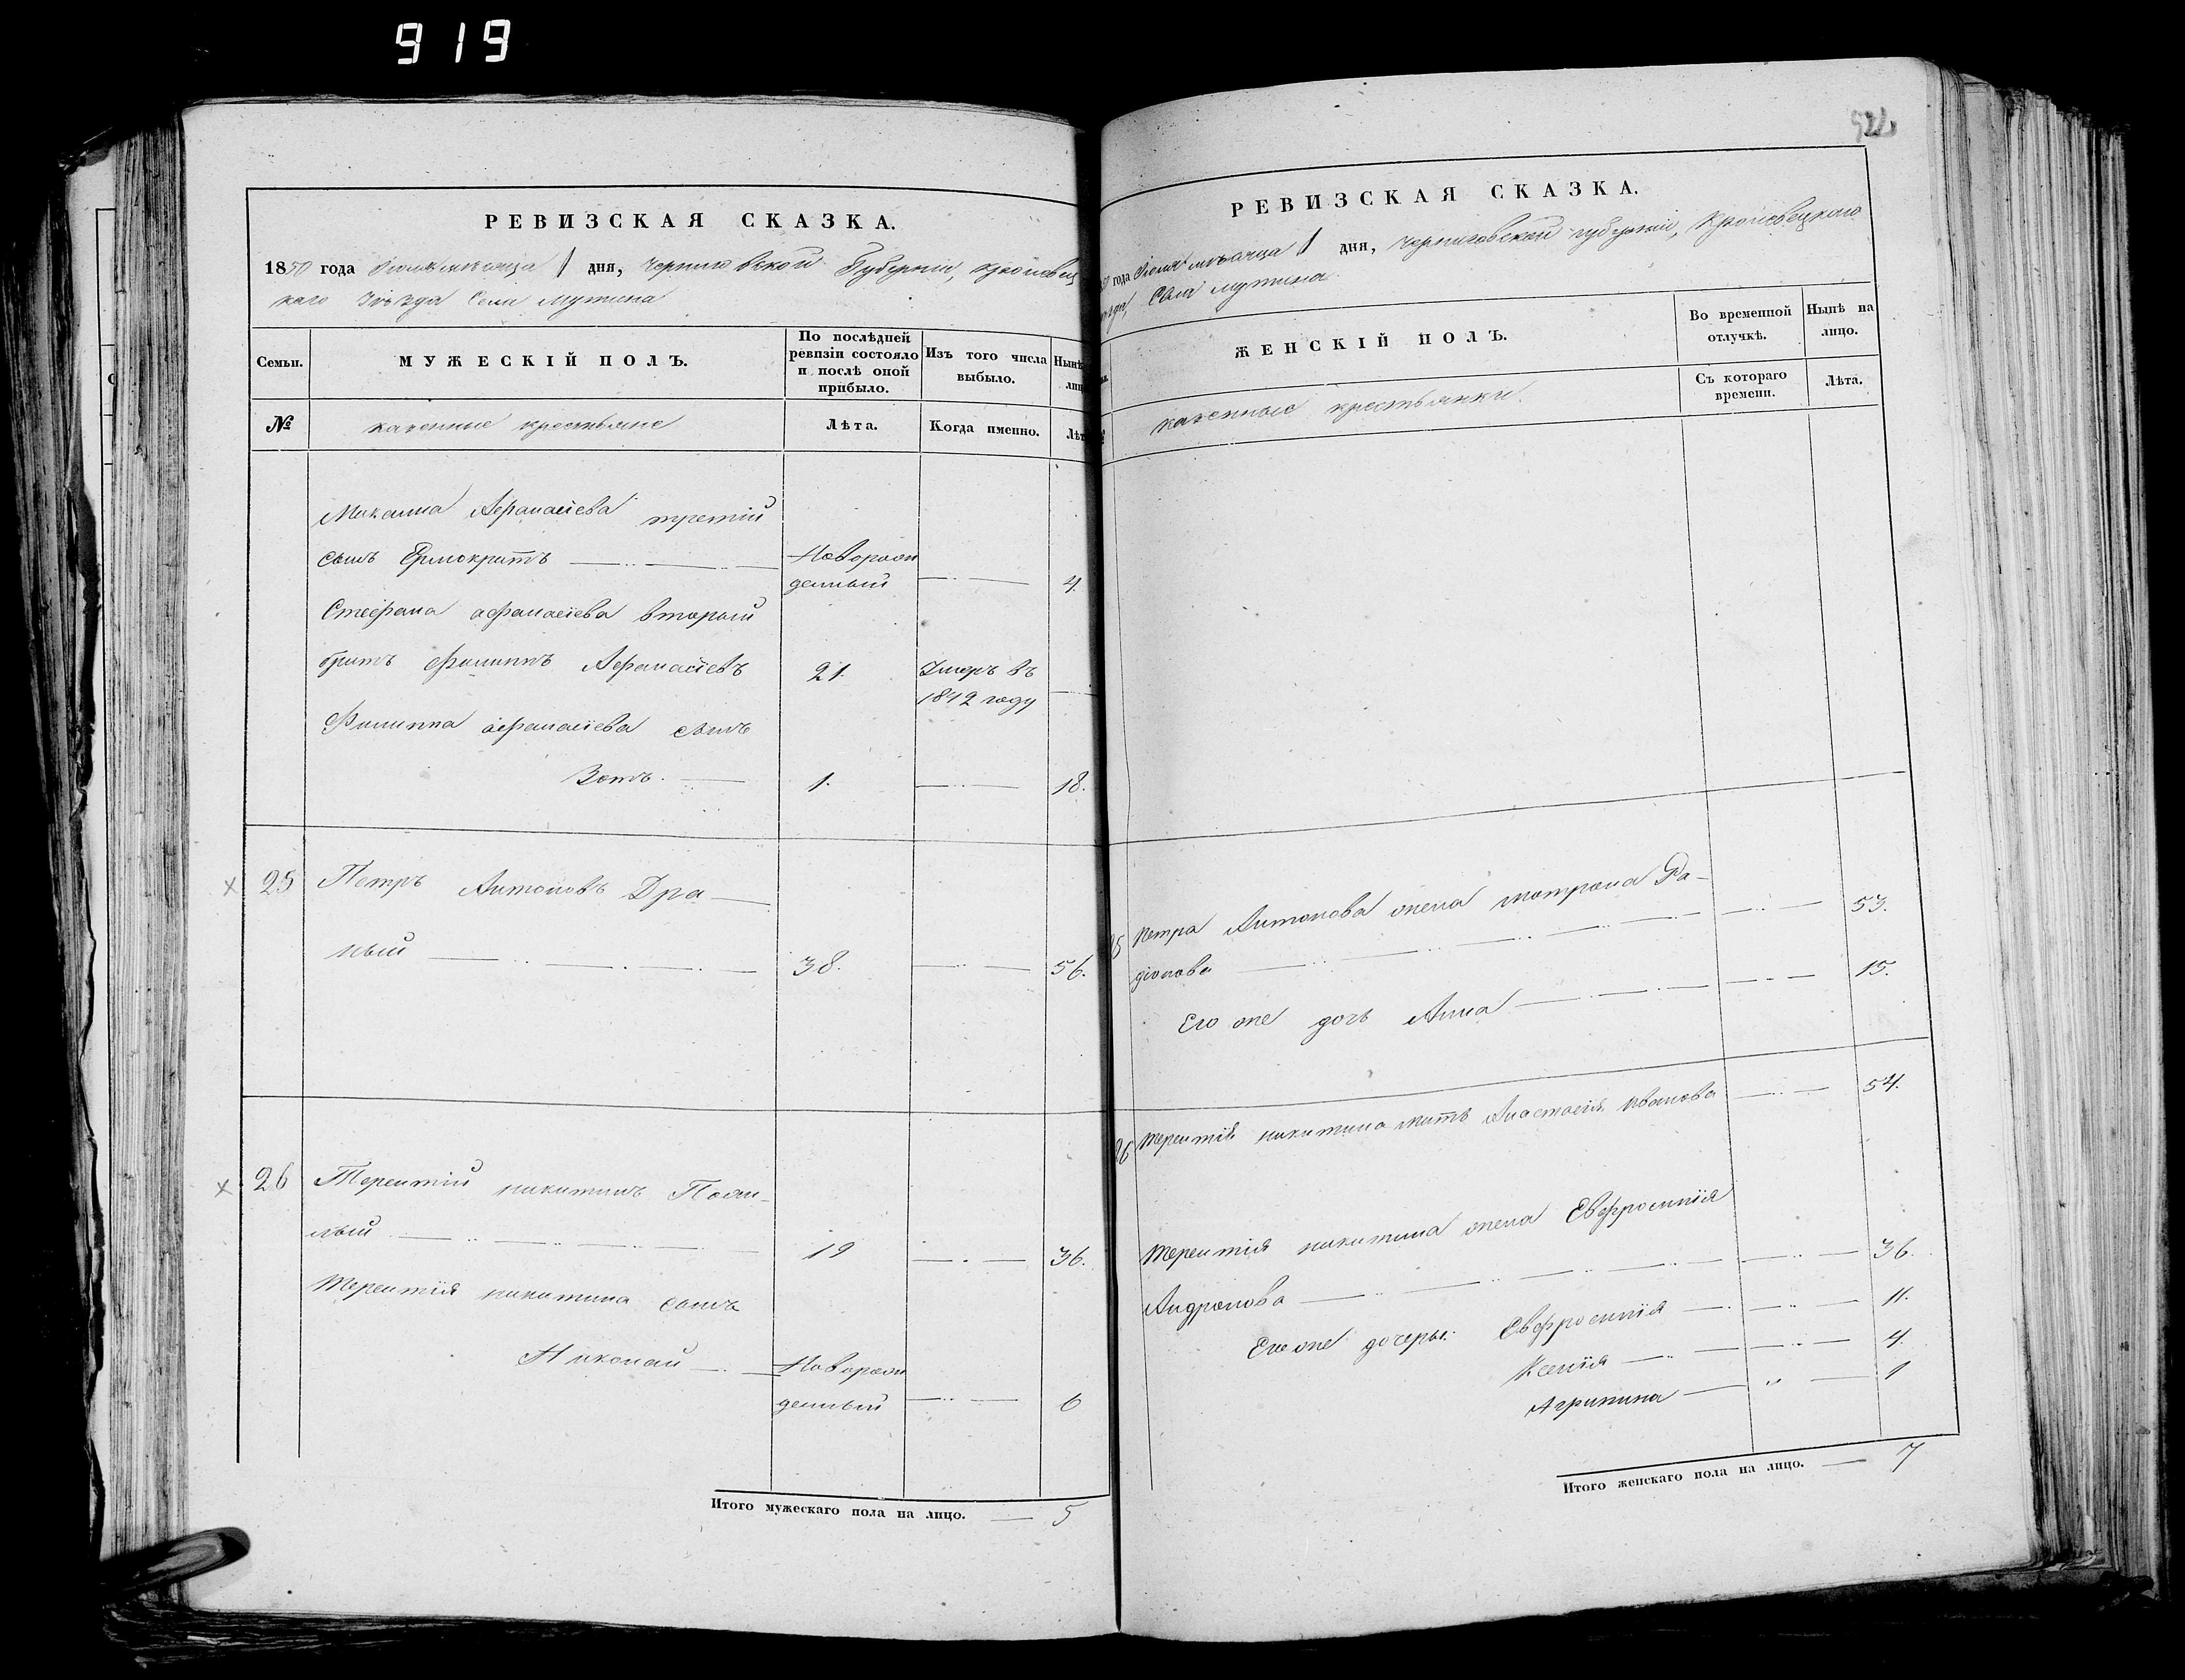 919
РЕВИЗСКАЯ СКАЗКА.
1850 года Июля мѣсяца 1 дня, Черниговской Губерніи, Кролевец
каго Уѣзда Села Мутина
Семьи.
МУЖЕСКІЙ ПОЛЪ.
По послѣдней ревизіи состояло и послѣ оной прибыло.
Изъ того числа выбыло.
Нынѣ
лиц
№
казенные крестьяне
Лѣта.
Когда именно.
Лѣт
Михаила Афанасіева третій
сынъ Ермократъ
Новорож
денный
4.
Стефана афанасіева вторый
братъ Филиппъ Афанасіевъ
21.
Умеръ въ
1842 году
Филиппа афанасіева сынъ
Зотъ.
1.
18.
25
Петръ Антоновъ Дра
ный
38.
56.
26
Терентій никитинъ
лый
19
36.
Терентія никитина сынъ
Николай
Новорож
денный
6
Итого мужескаго пола на лицо.
5
РЕВИЗСКАЯ СКАЗКА.
года Июля мѣсяца 1 дня, Черниговской губерніи, Кролевецкаго
Села мутина
ЖЕНСКІЙ ПОЛЪ.
Во временной отлучкѣ.
Нынѣ на лицо.
казенные крестьянки.
Съ котораго времени.
Лѣта.
25
Петра Антонова жена матрона Ра-
діонова
53.
Его же дочь Анна
15.
26
Терентія никитина мать Анастасія Иванова
54.
Терентія никитина жена Евфросинія
Андронова
36.
Его же дочеры: Евфросинія
11.
Ксенія
4.
Агрипина
1
Итого женскаго пола на лицо.
7